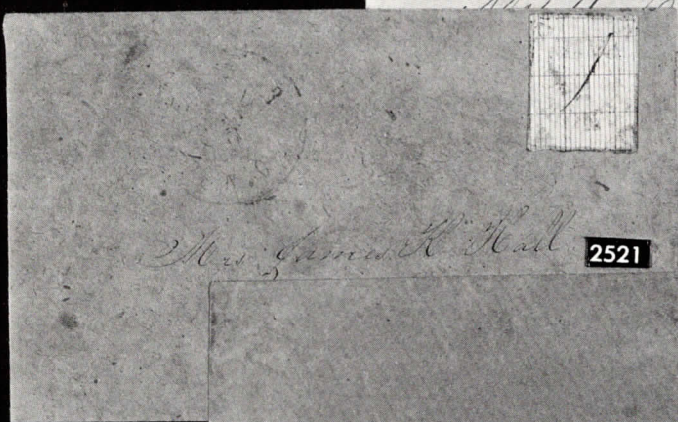 Mrs James K Hall
2521